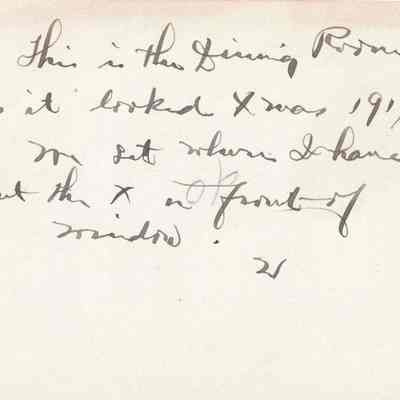 This is the Dining Room
s it looked Xmas 191
sat where I have
ut the X in front of
window.